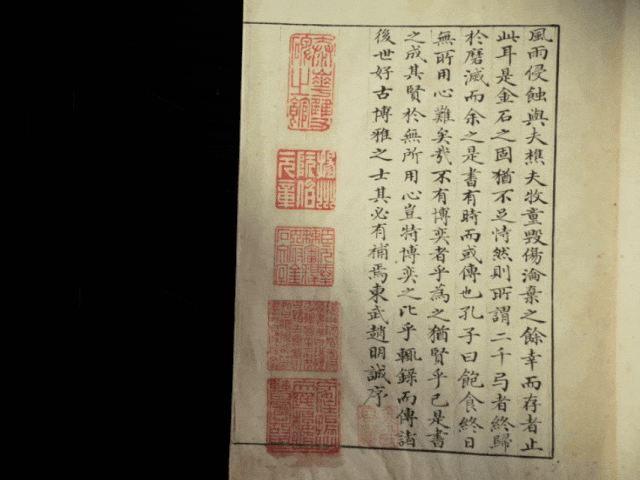 風雨侵蝕與夫樵夫牧童毀傷淪棄之餘幸而存者止
此耳是金石之固猶不足恃然則所謂二千弓者終歸
於磨滅而余之是書有時而或傳也孔子曰飽食終日
無所用心難矣哉不有博奕者乎為之猶賢乎已是書
之成其賢於無所用心豈特博奕之比乎輒錄而傳諸
後世好古博雅之士其必有補焉東武趙明誠序
泰華雙
碑之館
揚州
阮伯
元章